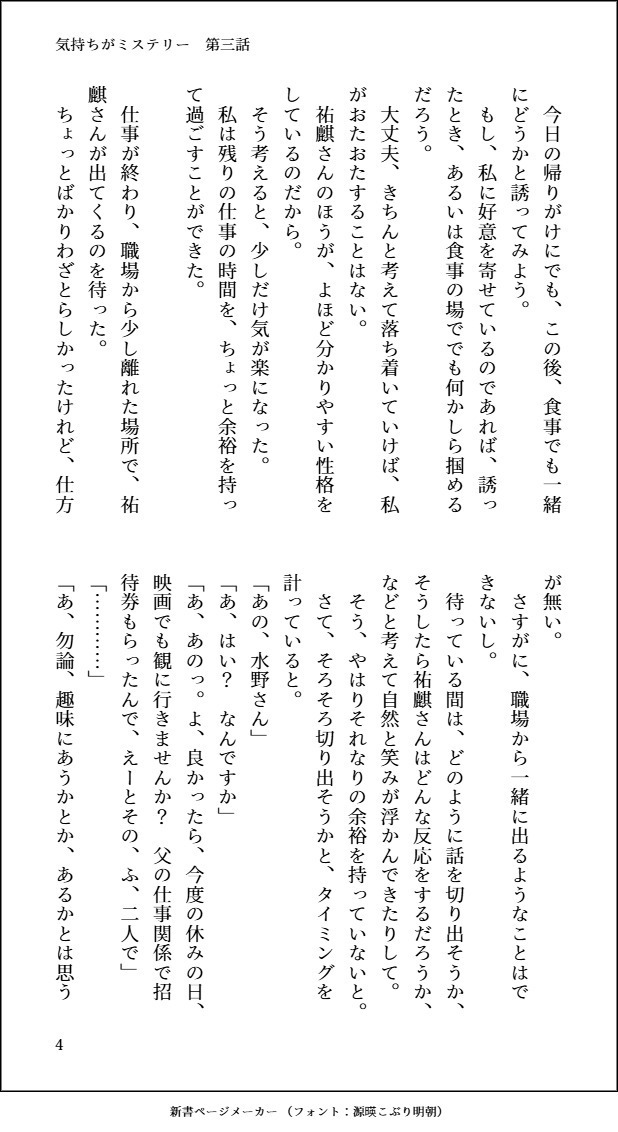 気持ちがミステリー　第三話
　今日の帰りがけにでも、この後、食事でも一緒
にどうかと誘ってみよう。
　もし、私に好意を寄せているのであれば、誘っ
たとき、あるいは食事の場ででも何かしら掴める
だろう。
　大丈夫、きちんと考えて落ち着いていけば、私
がおたおたすることはない。
　祐麒さんのほうが、よほど分かりやすい性格を
しているのだから。
　そう考えると、少しだけ気が楽になった。
　私は残りの仕事の時間を、ちょっと余裕を持っ
て過ごすことができた。
　仕事が終わり、職場から少し離れた場所で、祐
麒さんが出てくるのを待った。
　ちょっとばかりわざとらしかったけれど、仕方
が無い。
　さすがに、職場から一緒に出るようなことはで
きないし。
　待っている間は、どのように話を切り出そうか、
そうしたら祐麒さんはどんな反応をするだろうか、
などと考えて自然と笑みが浮かんできたりして。
　そう、やはりそれなりの余裕を持っていないと。
　さて、そろそろ切り出そうかと、タイミングを
計っていると。
「あの、水野さん」
「あ、はい？　なんですか」
「あ、あのっ。よ、良かったら、今度の休みの日、
映画でも観に行きませんか？　父の仕事関係で招
待券もらったんで、えーとその、ふ、二人で」
「…………」
「あ、勿論、趣味にあうかとか、あるかとは思う
4
新書ページメーカー（フォント：源暎こぶり明朝）